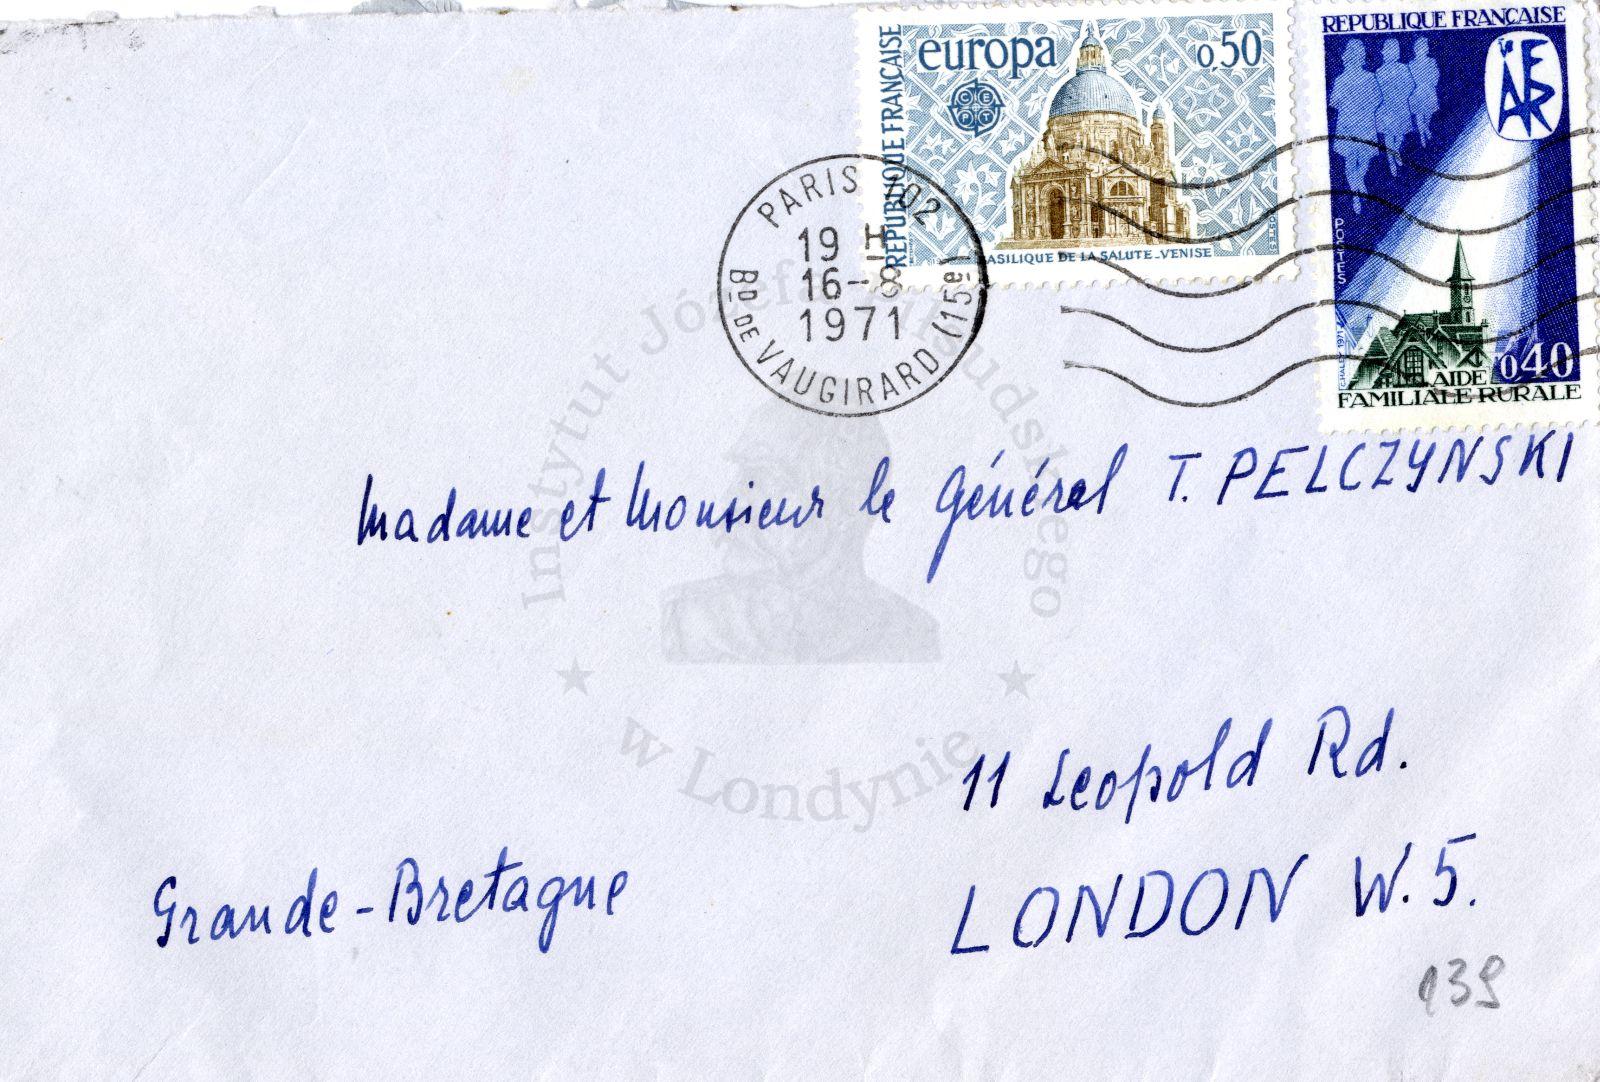 REPUBLIQUE FRANÇAISE
europa
0,50
CEPT
BASILIQUE DE LA SALUTE_VENISE
REPUBLIQUE FRANÇAISE
POSTES
CHALEY 1971
0,40
AIDE
FAMILIALE RURALE
PARIS 102
19 H
16-8
1971
BD DE VAUGIRARD (15e)
Madame et Monsieur le Général T. PELCZYNSKI
11 Leopold Rd.
LONDON W.5.
Grande-Bretagne
139
Instytut Józefa Piłsudskiego
w Londynie